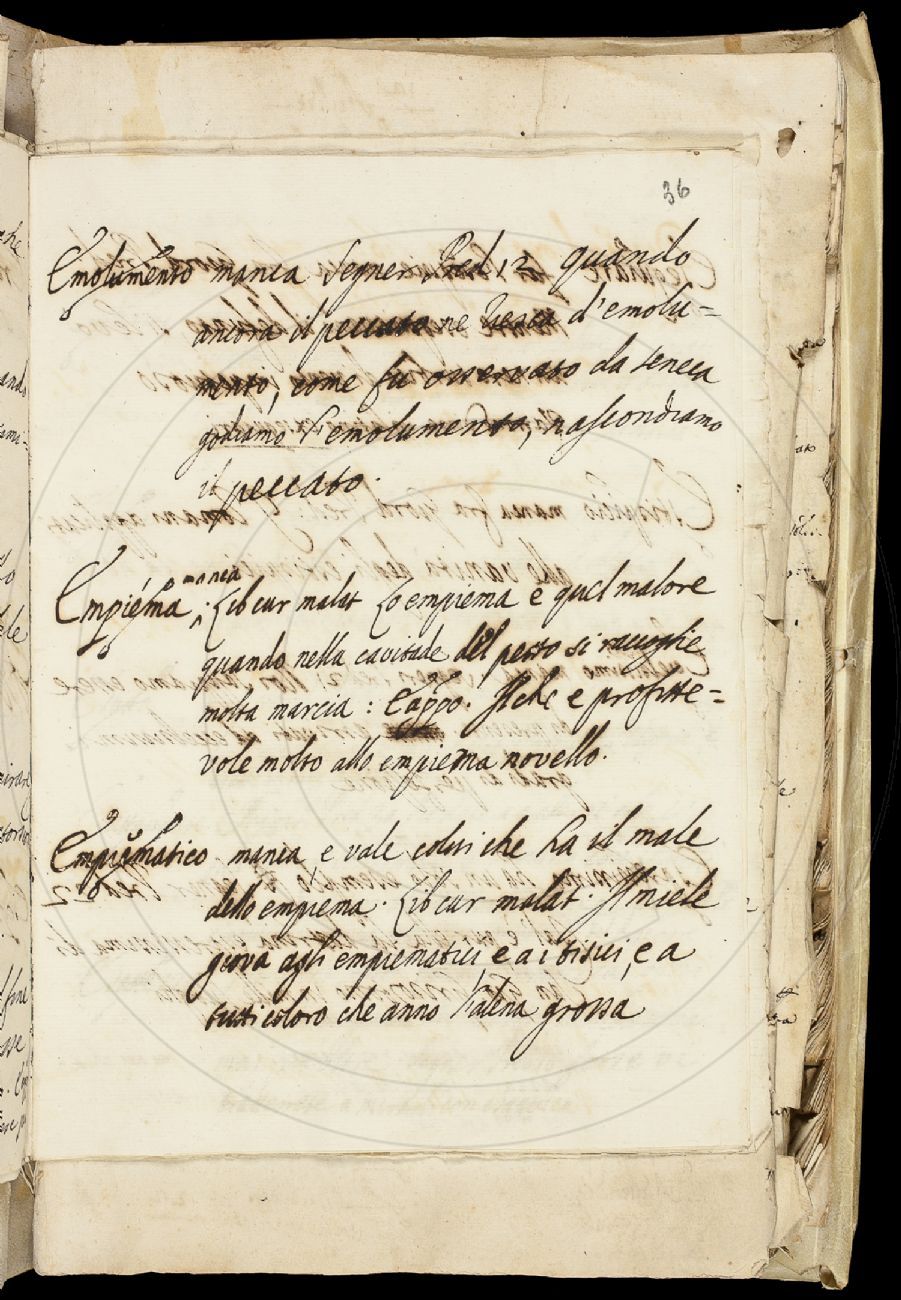 36
Emolumento manca Segner. Pred 12 quando
ancora il peccato ne d'emolu=
mento, come fu osservato da seneca
godiamo l'emolumento, nascondiamo
il peccato.
Empiéma manca: Lib cur malat Lo empiema e quel malore
quando nella cavitade del petto si raccoglie
molta marcia: E appo. Il che e profitte=
vole molto allo empiema novello.
Empiematico manca, e vale colui che ha il male
dello empiema. Lib cur malat. Il miele
giova agli empiematici e a i tisici, e a
tutti coloro che anno l'alena grossa